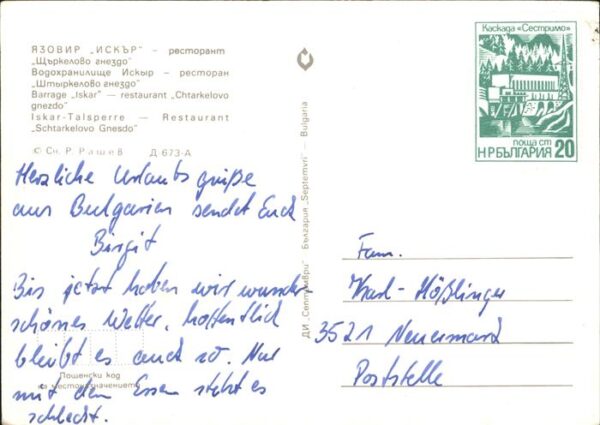 ЯЗОВИР „ИСКЪР" – ресторант
„Щъркелово гнездо"
Водохранилище Искыр – ресторан
„Штыркелово гнездо"
Barrage „Iskar" – restaurant „Chtarkelovo
gnezdo"
Iskar-Talsperre – Restaurant
"Schtarkelovo Gnesdo"
© Сн. Р. Рашев Д 673-А
Herzliche Urlaubsgrüße
aus Bulgarien sendet Euch
Birgit
Bis jetzt haben wir wunder
schönes Wetter, hoffentlich
bleibt es auch so. Nur
mit dem Essen steht es
schlecht.
Пощенски код
на местоназначението
ДИ „Септември" България „Septemvri" – Bulgaria
Каскада «Сестримо»
поща ст
НР БЪЛГАРИЯ 20
Fam.
Karl-Hößlinger
3521 Neuermark
Poststelle